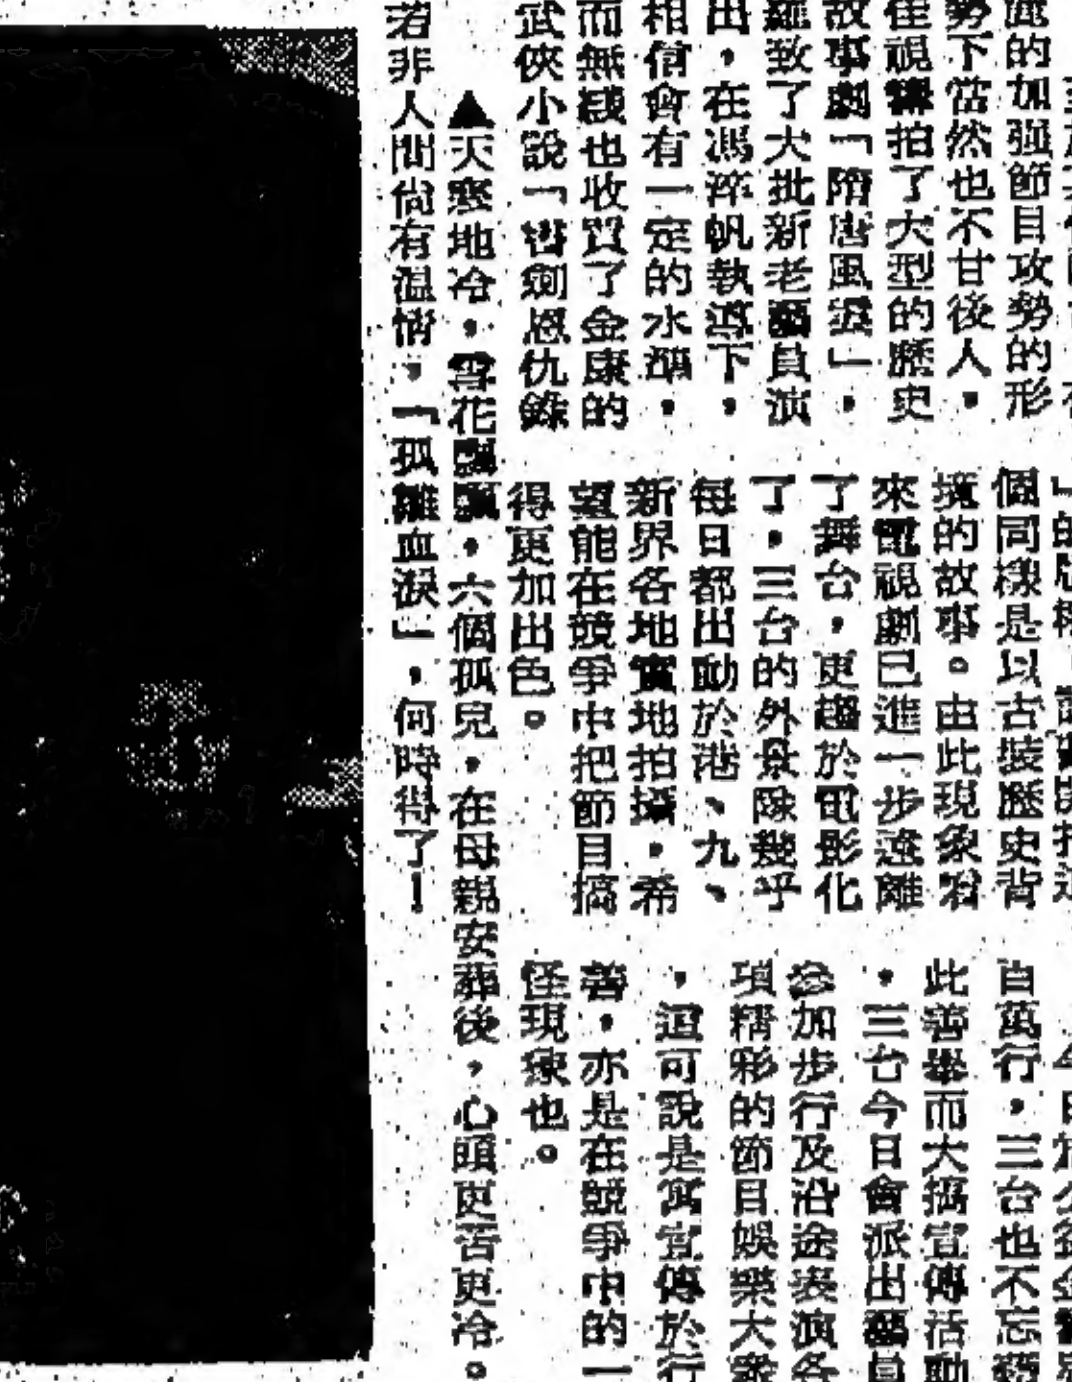 面的加强節目攻勢的形
勢下當然也不甘後人，
佳視拍了大型的歷史
故事劇「隋唐風雲」，
羅致了大批新老藝員演
出，在馮淬帆執導下，
相信會有一定的水準，
而無綫也收買了金庸的
武俠小說「書劍恩仇錄
個同樣是以古裝歷史背
境的故事。由此現象看
來電視劇已進一步遠離
了舞台，更趨於電影化
了，三台的外景隊幾乎
每日都出動於港、九、
新界各地實地拍攝，希
望能在競爭中把節目搞
得更加出色。
百萬行，三台也不忘
此善舉而大搞宣傳活動
，三台今日會派出藝員
參加步行及沿途表演各
項精彩的節目娛樂大衆
，這可說是寓宣傳於行
善，亦是在競爭中的一
怪現象也。
▲天寒地冷，雪花飄飄，六個孤兒，在母親安葬後，心頭更苦更冷。
若非人間尚有温情，「孤雛血淚」，何時得了！